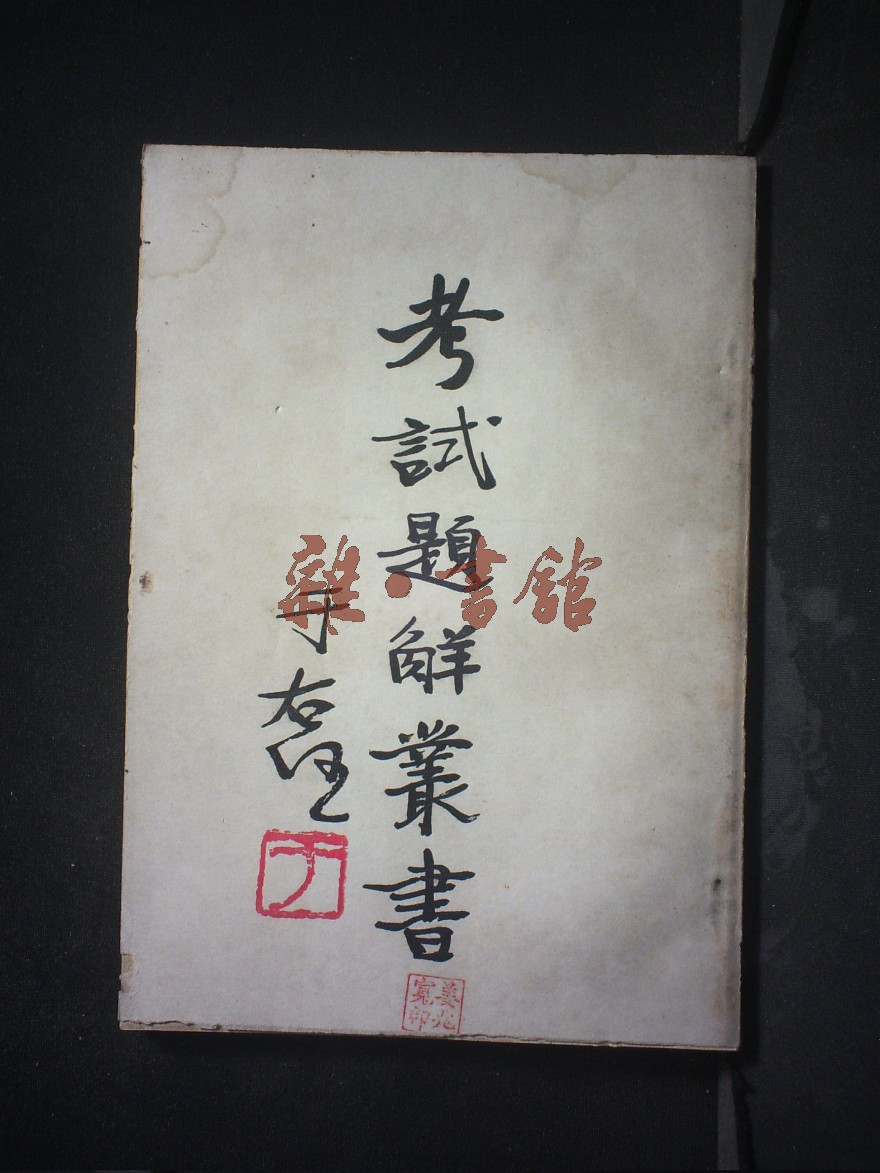 考試題解叢書
于右任
于
姜兆
寬印
雜·書館